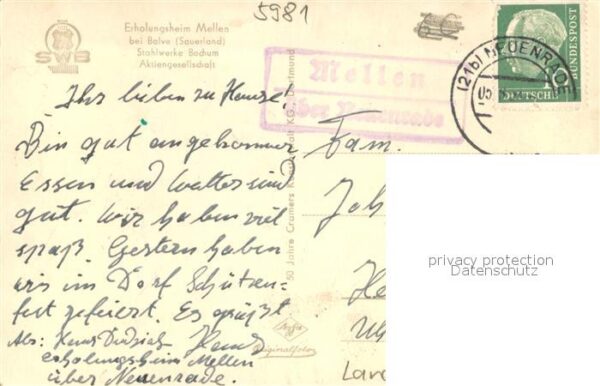 5981
Erholungsheim Mellen
bei Balve (Sauerland)
Stahlwerke Bochum
Aktiengesellschaft
SWB
Mellen
über Neuenrade
(21b) NEUENRADE
DEUTSCHE
BUNDESPOST
Ihr lieben zu Hause!
Bin gut angekommen
Essen und Wetter sind
gut. Wir haben viel
spaß. Gestern haben
wir im Dorf Schützen-
fest gefeiert. Es grüßt
Hans
Abs: Hans
erholungsheim Mellen
über Neuenrade.
50 Jahre Cramers Kunstanstalt KG, Dortmund
Agfa
Originalfoto
Fam.
Joh
He
privacy protection
Datenschutz